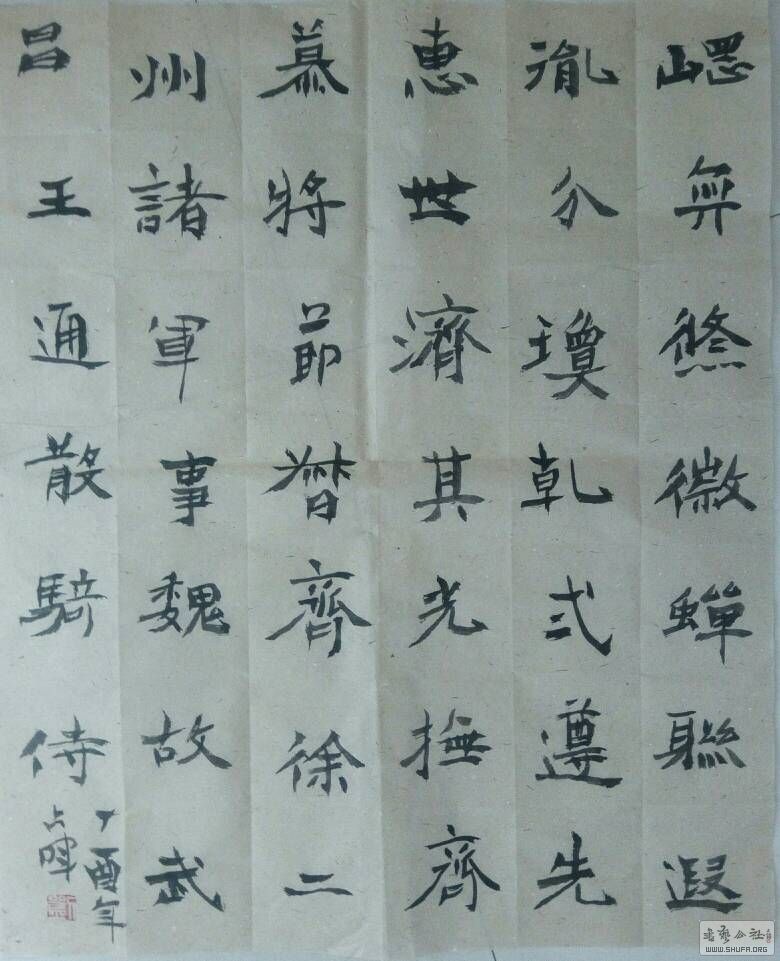 𡾰無煞徽蟬聯遐
胤分瓊乹弌遵先
惠世濟其光撫齊
慕將節督齊徐二
州諸軍事魏故武
昌王通散騎侍
丁酉年
占暉
书艺公社
WWW.SHUFA.ORG